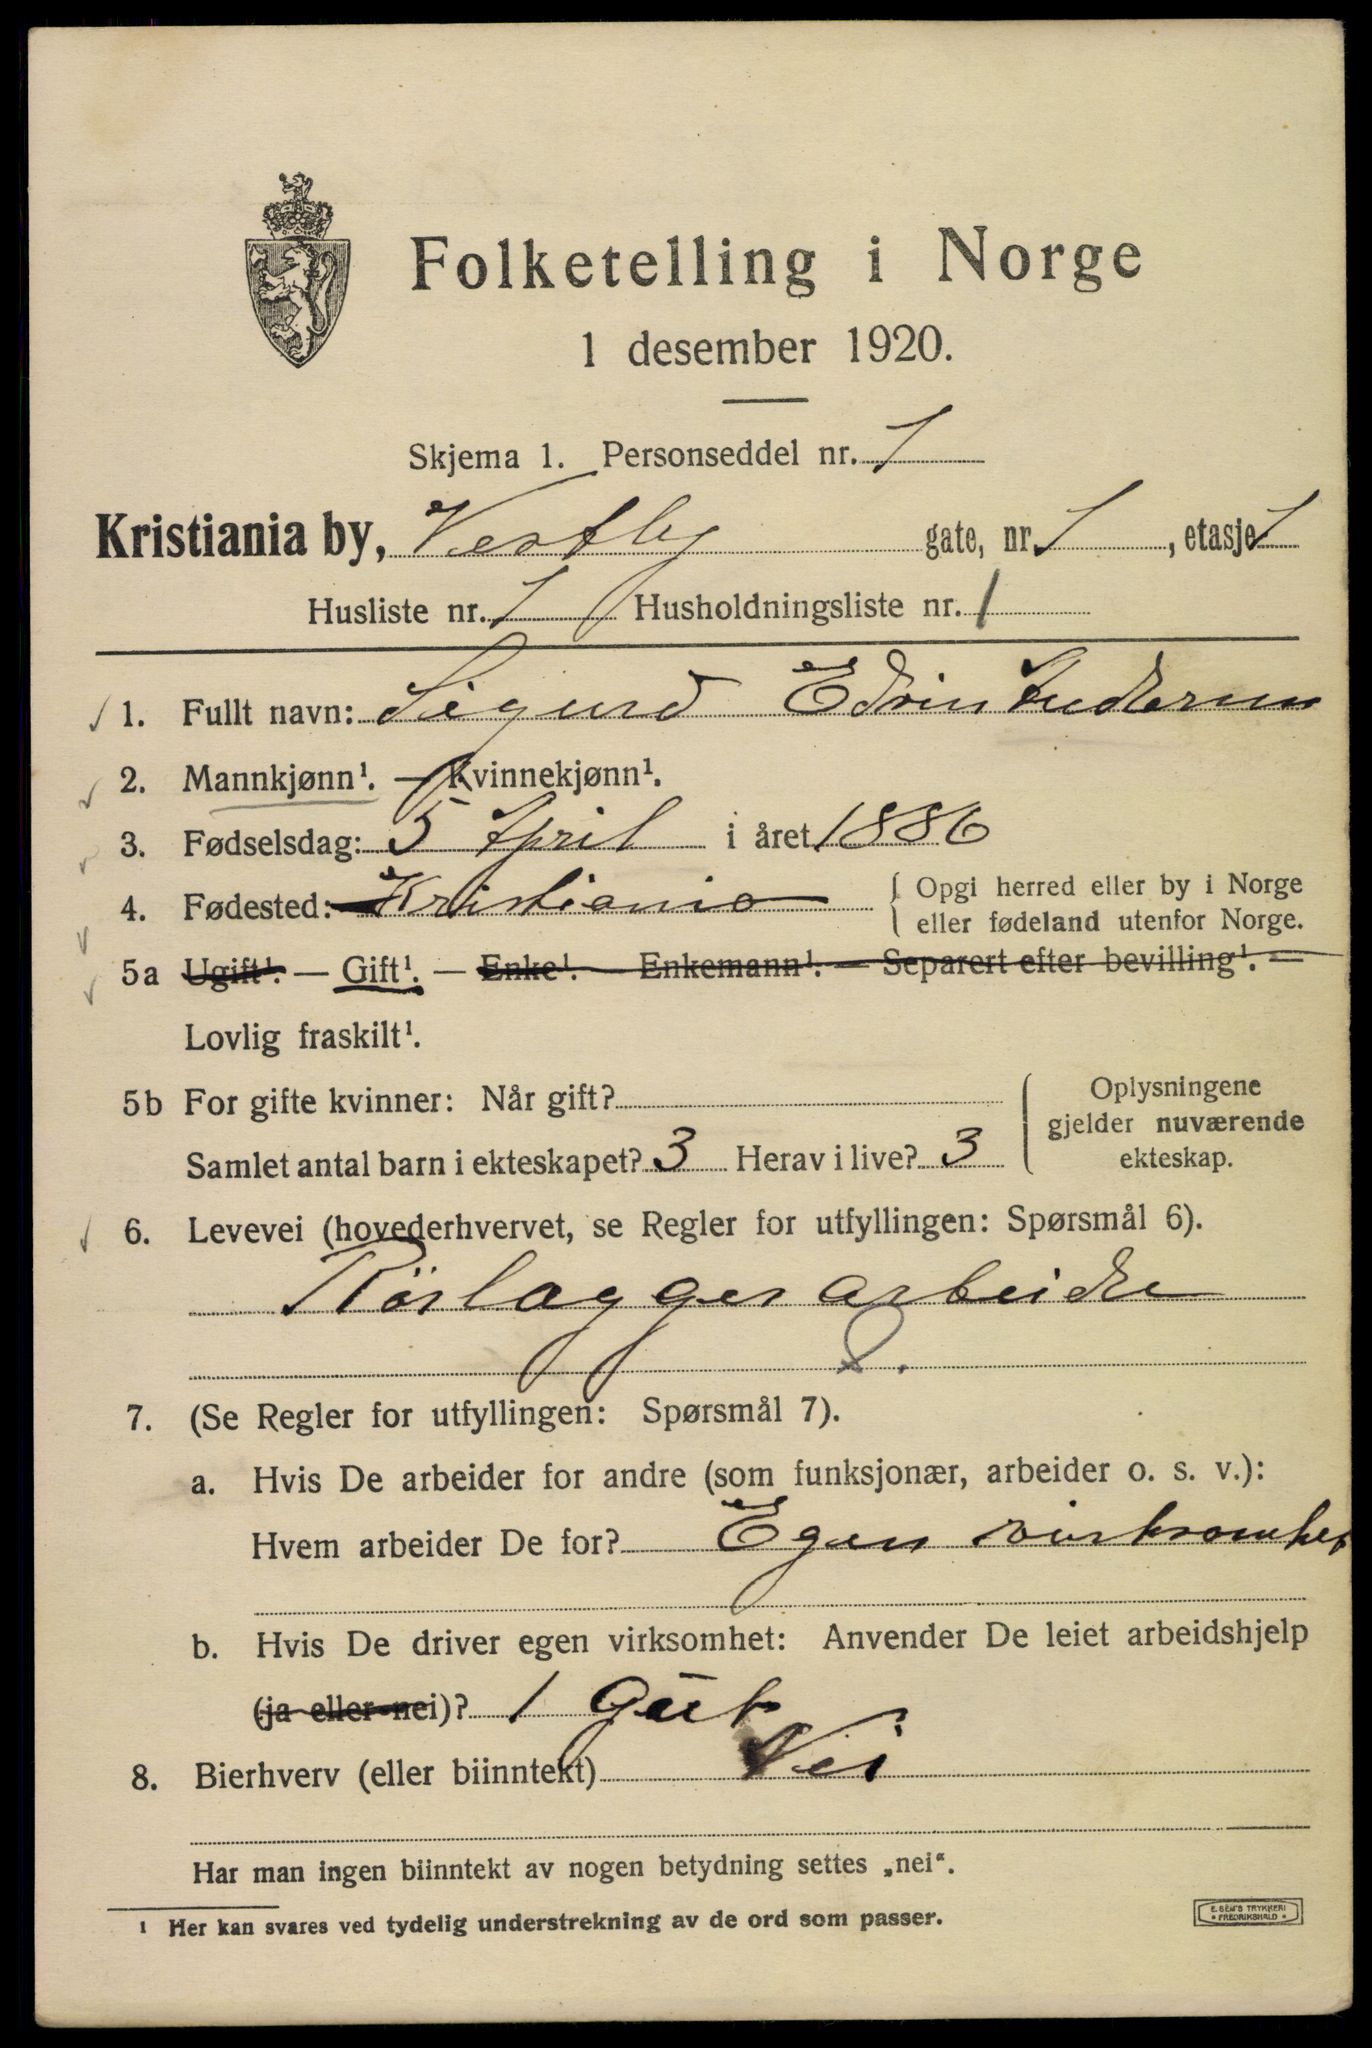 Folketelling i Norge
1 desember 1920.
Skjema 1. Personseddel nr. 1
Kristiania by, Vestby gate, nr. 1, etasje 1
Husliste nr. 1 Husholdningsliste nr. 1
1. Fullt navn: Sigurd Edvin
2. Mannkjønn¹. — Kvinnekjønn¹.
3. Fødselsdag: 5 April i året 1886
4. Fødested: Kristiania { Opgi herred eller by i Norge
eller fødeland utenfor Norge.
5a Ugift¹. — Gift¹. — Enke¹. — Enkemann¹. — Separert efter bevilling¹. —
Lovlig fraskilt¹.
5b For gifte kvinner: Når gift?
Samlet antal barn i ekteskapet? 3 Herav i live? 3
Oplysningene
gjelder nuværende
ekteskap.
6. Levevei (hovederhvervet, se Regler for utfyllingen: Spørsmål 6).
Rörlaggerarbeide
7. (Se Regler for utfyllingen: Spørsmål 7).
a. Hvis De arbeider for andre (som funksjonær, arbeider o. s. v.):
Hvem arbeider De for? Egen virksomhet
b. Hvis De driver egen virksomhet: Anvender De leiet arbeidshjelp
(ja eller nei)? 1 gut
8. Bierhverv (eller biinntekt) Nei
Har man ingen biinntekt av nogen betydning settes „nei“.
¹ Her kan svares ved tydelig understrekning av de ord som passer.
E. SEM'S TRYKKERI
• FREDRIKSHALD •